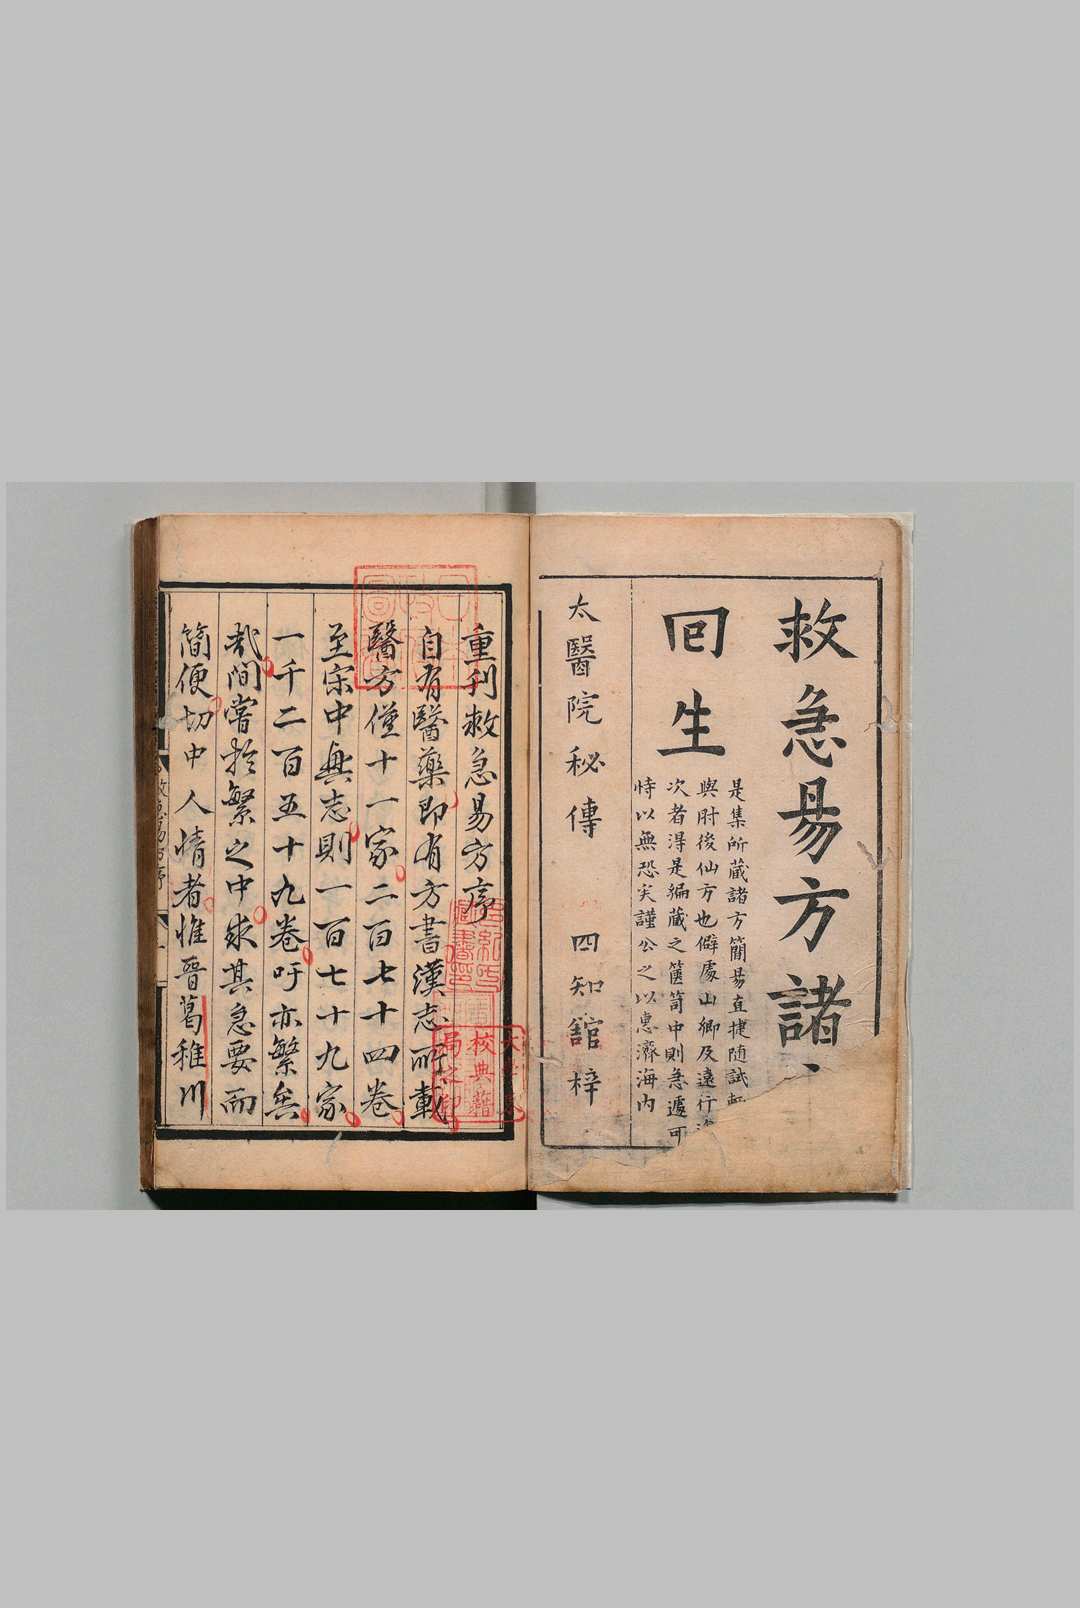 救急易方諸
回生
是集所藏諸方簡易直捷随試輒
與肘後仙方也僻處山鄉及遠行
次者得是編藏之篋笥中則急遽可
恃以無恐矣謹公之以惠濟海内
太醫院秘傳 四知舘梓
重刊救急易方序
自有醫藥即有方書漢志所載
醫方僅十一家二百七十四卷
至宋中興志則一百七十九家
一千二百五十九卷吁亦繁矣
哉間嘗於繁之中求其急要而
簡便切中人情者惟晉葛稚川
救急易方序